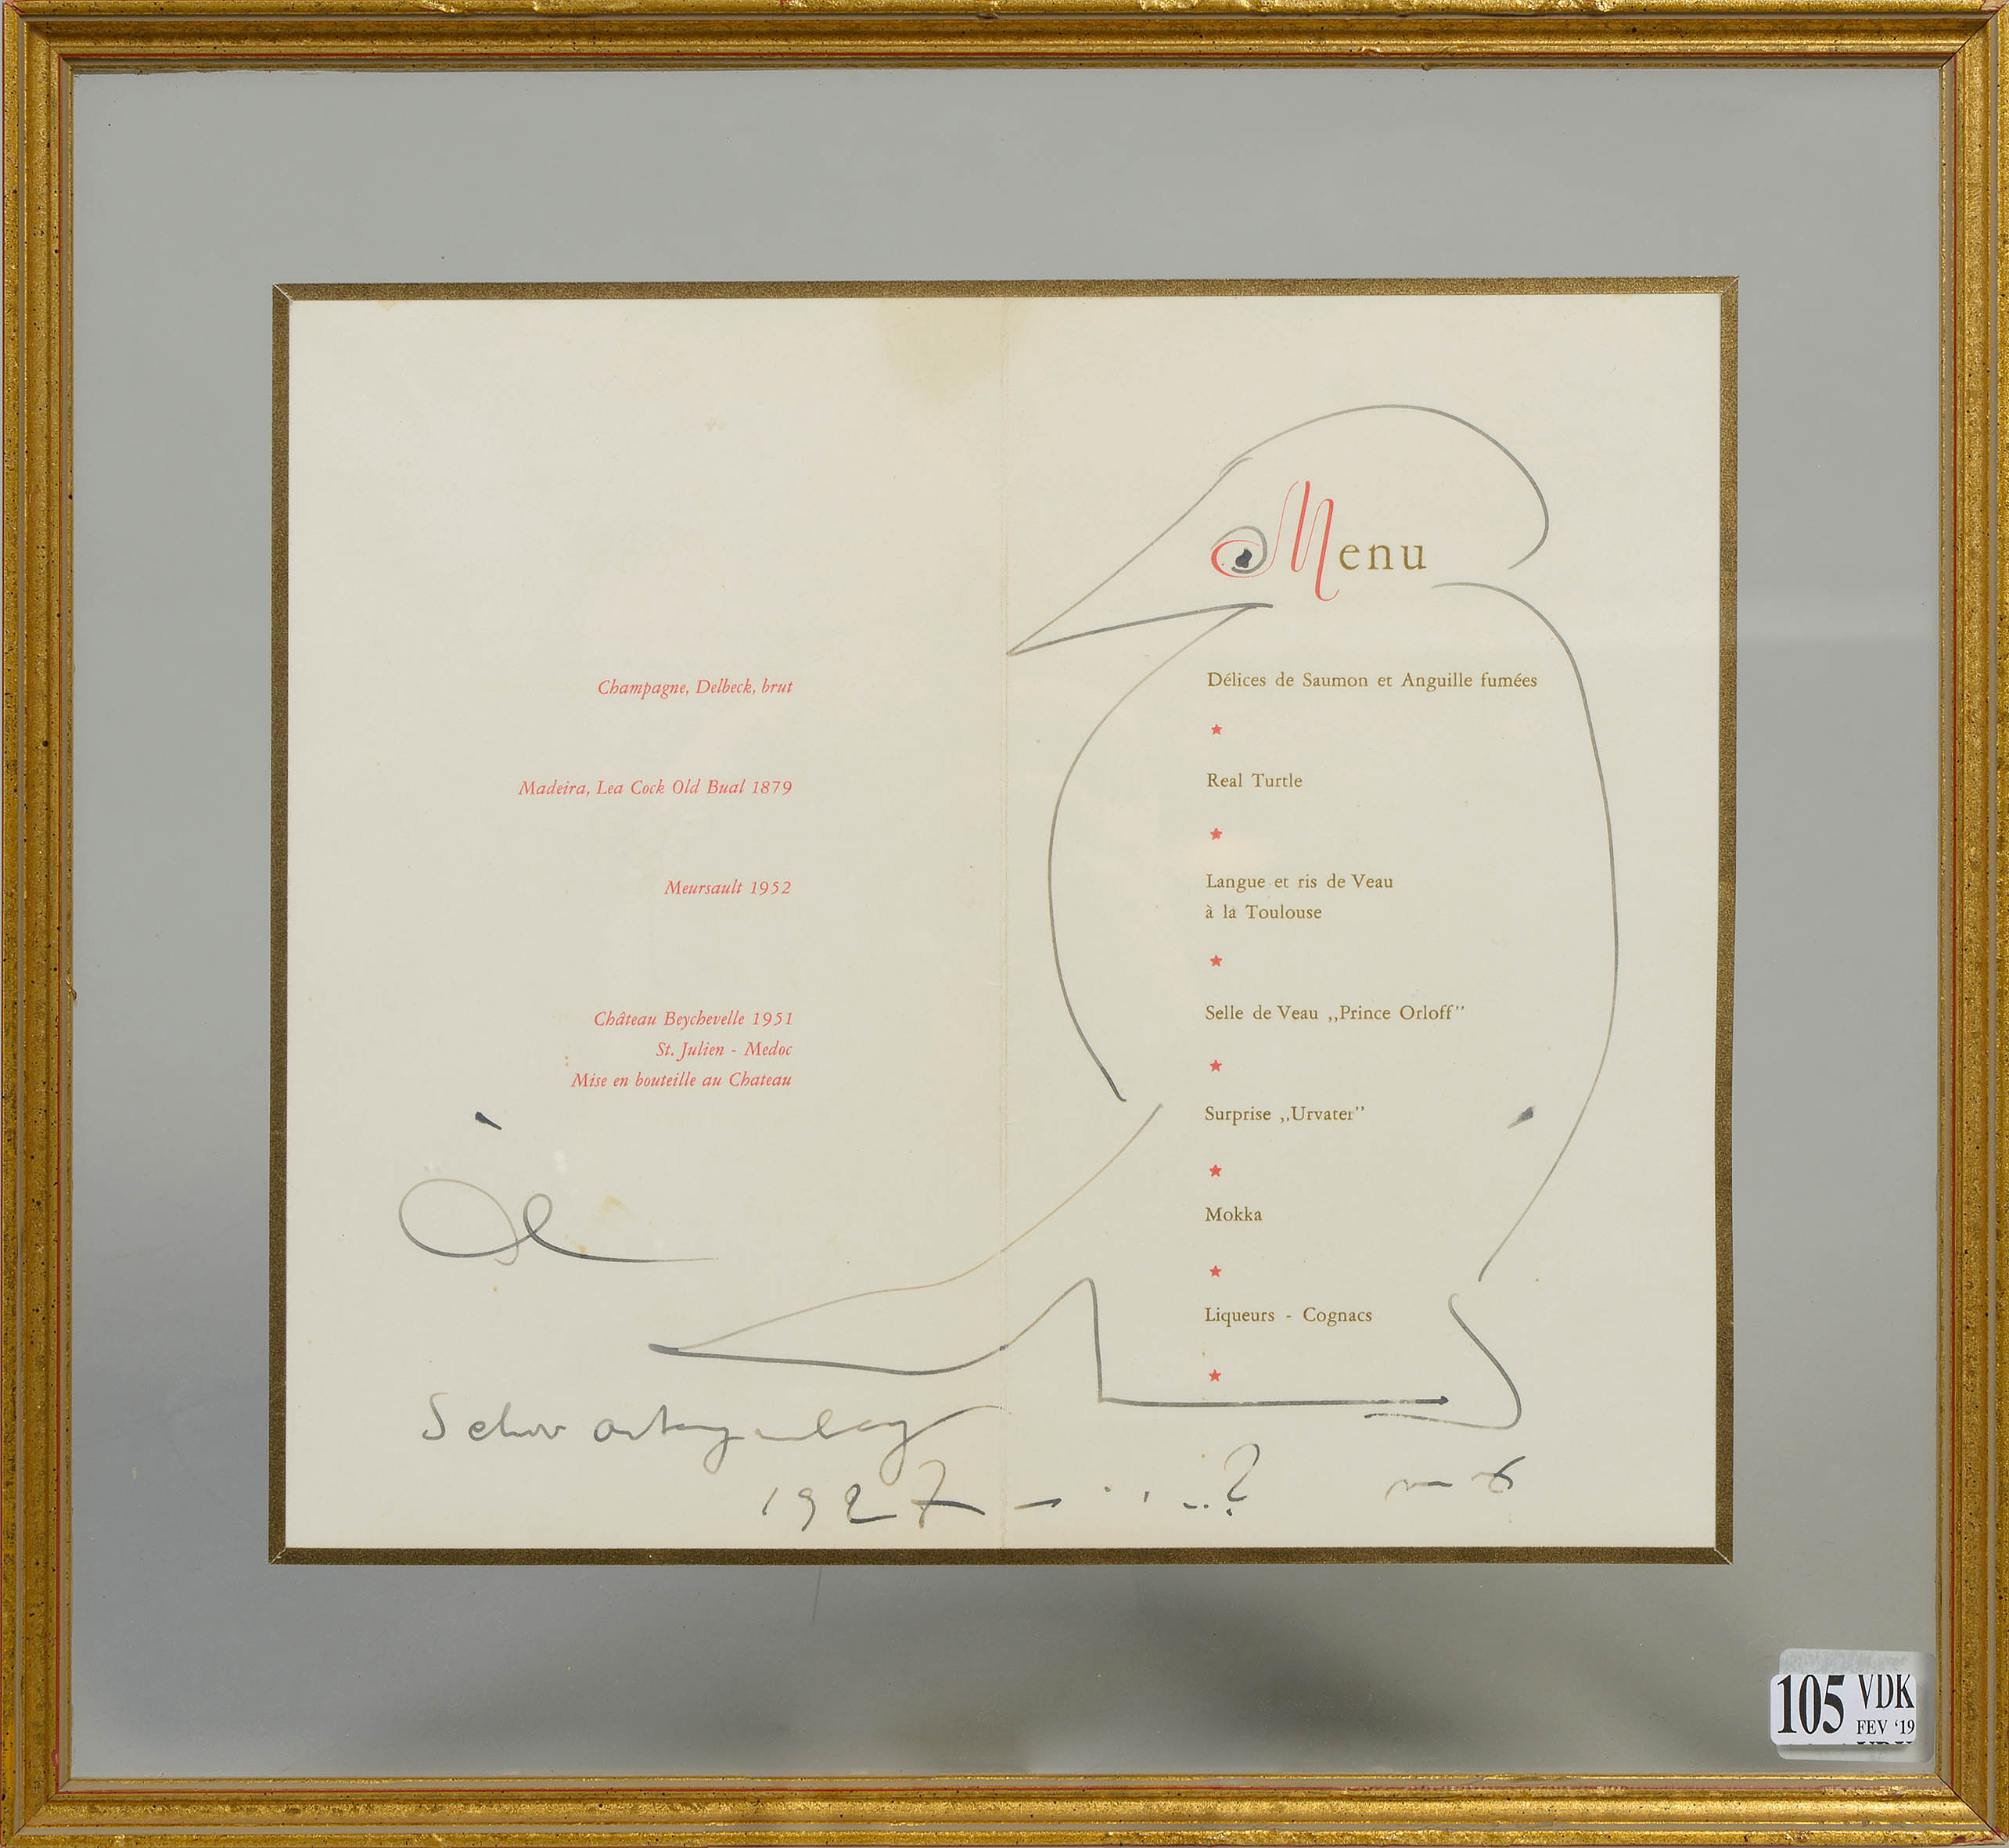 Champagne, Delbeck, brut
Madeira, Lea Cock Old Bual 1879
Meursault 1952
Château Beychevelle 1951
St. Julien - Medoc
Mise en bouteille au Chateau
Menu
Délices de Saumon et Anguille fumées
Real Turtle
Langue et ris de Veau
à la Toulouse
Selle de Veau „Prince Orloff”
Surprise „Urvater”
Mokka
Liqueurs - Cognacs
1927 - .....?
105 VDK
FEV ‘19